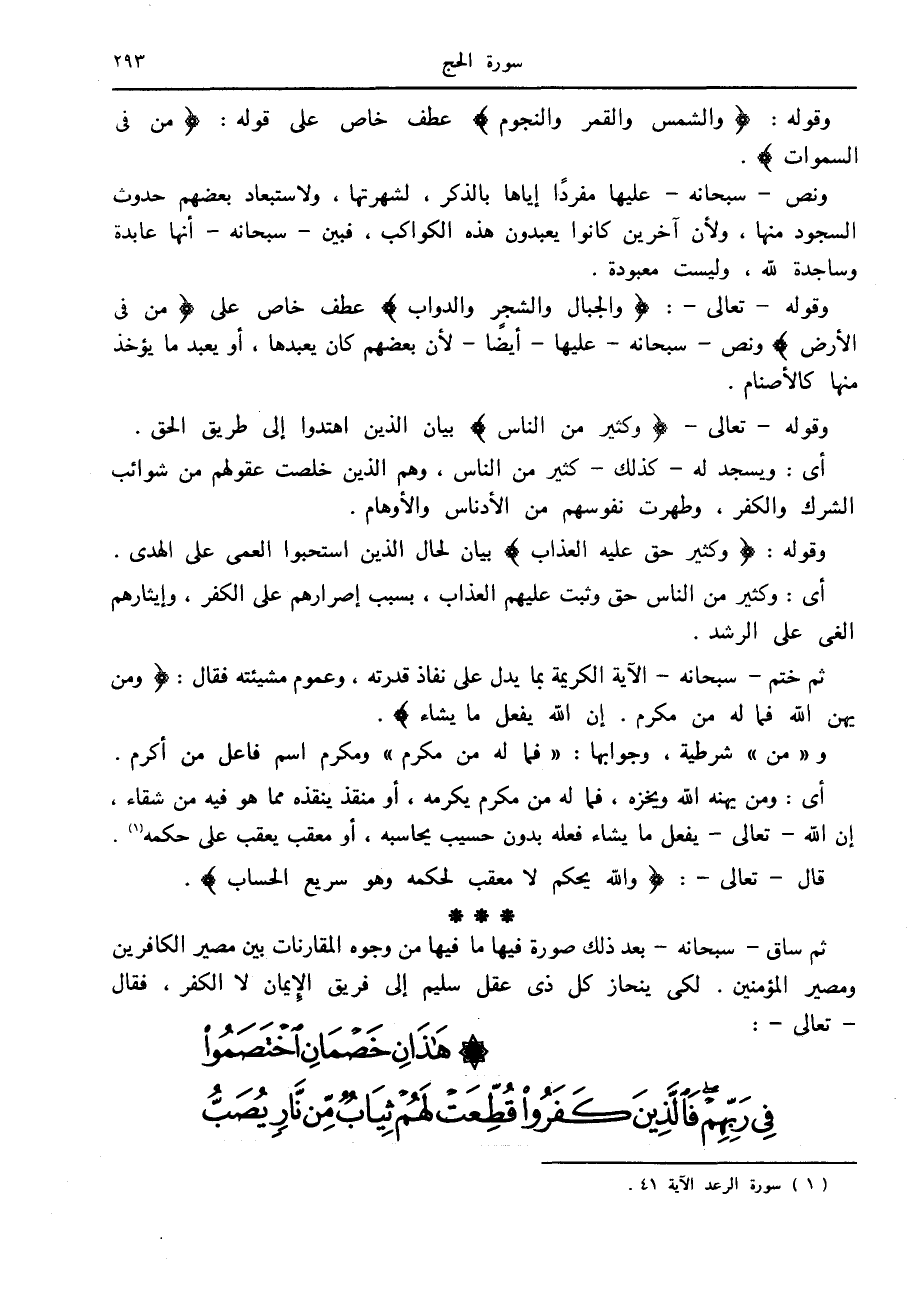 سورة الحج ٢٩٣
وقوله : ﴿ والشمس والقمر والنجوم ﴾ عطف خاص على قوله : ﴿ من فى
السموات ﴾ .
ونص – سبحانه – عليها مفردًا إياها بالذكر ، لشهرتها ، ولاستبعاد بعضهم حدوث
السجود منها ، ولأن آخرين كانوا يعبدون هذه الكواكب ، فبين – سبحانه – أنها عابدة
وساجدة لله ، وليست معبودة .
وقوله – تعالى – : ﴿ والجبال والشجر والدواب ﴾ عطف خاص على ﴿ من فى
الأرض ﴾ ونص – سبحانه – عليها – أيضًا – لأن بعضهم كان يعبدها ، أو يعبد ما يؤخذ
منها كالأصنام .
وقوله – تعالى – ﴿ وكثير من الناس ﴾ بيان الذين اهتدوا إلى طريق الحق .
أى : ويسجد له – كذلك – كثير من الناس ، وهم الذين خلصت عقولهم من شوائب
الشرك والكفر ، وطهرت نفوسهم من الأدناس والأوهام .
وقوله : ﴿ وكثير حق عليه العذاب ﴾ بيان لحال الذين استحبوا العمى على الهدى .
أى : وكثير من الناس حق وثبت عليهم العذاب ، بسبب إصرارهم على الكفر ، وإيثارهم
الغى على الرشد .
ثم ختم – سبحانه – الآية الكريمة بما يدل على نفاذ قدرته ، وعموم مشيئته فقال : ﴿ ومن
يهن الله فما له من مكرم . إن الله يفعل ما يشاء ﴾ .
و « من » شرطية ، وجوابها : « فما له من مكرم » ومكرم اسم فاعل من أكرم .
أى : ومن يهنه الله ويخزه ، فما له من مكرم يكرمه ، أو منقذ ينقذه مما هو فيه من شقاء ،
إن الله – تعالى – يفعل ما يشاء فعله بدون حسيب يحاسبه ، أو معقب يعقب على حكمه(١) .
قال – تعالى – : ﴿ والله يحكم لا معقب لحكمه وهو سريع الحساب ﴾ .
* * *
ثم ساق – سبحانه – بعد ذلك صورة فيها ما فيها من وجوه المقارنات بين مصير الكافرين
ومصير المؤمنين . لكى ينحاز كل ذى عقل سليم إلى فريق الإيمان لا الكفر ، فقال
– تعالى – :
۞ هَٰذَانِ خَصْمَانِ ٱخْتَصَمُوا۟
فِى رَبِّهِمْ ۖ فَٱلَّذِينَ كَفَرُوا۟ قُطِّعَتْ لَهُمْ ثِيَابٌ مِّن نَّارٍ يُصَبُّ
( ١ ) سورة الرعد الآية ٤١ .